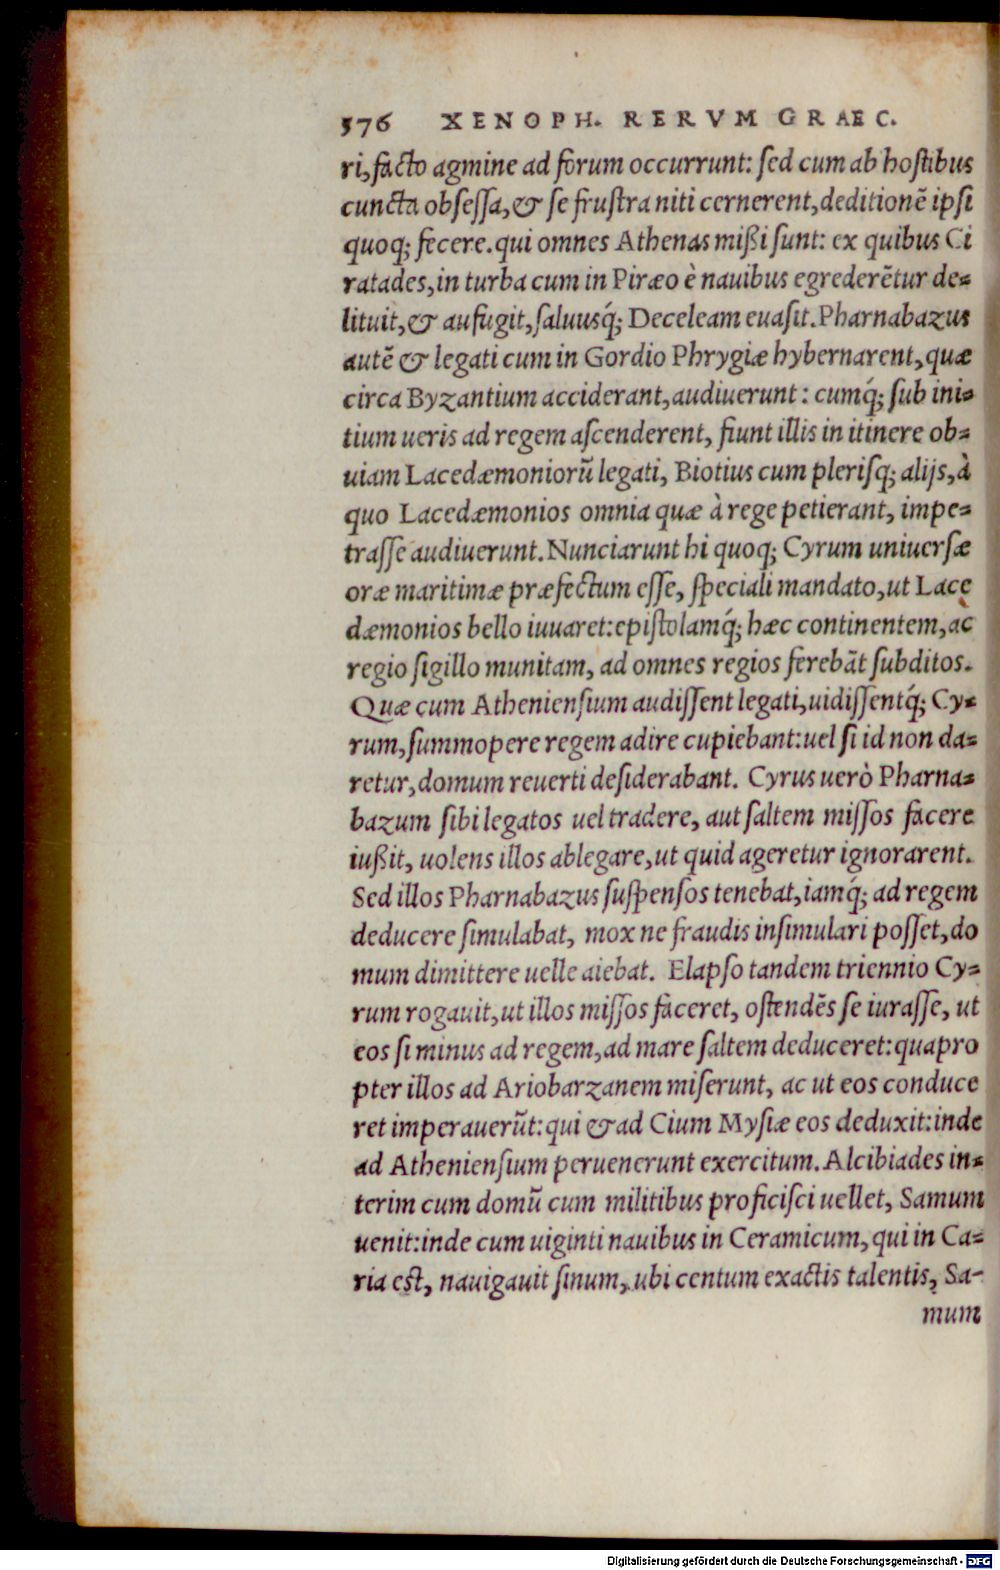 576 XENOPH. RERVM GRAEC.
ri, facto agmine ad forum occurrunt: sed cum ab hostibus
cuncta obsessa, & se frustra niti cernerent, deditionē ipsi
quoq; fecere. qui omnes Athenas mißi sunt: ex quibus Ci
ratades, in turba cum in Piræo è nauibus egrederētur de=
lituit, & aufugit, saluusq́; Deceleam euasit. Pharnabazus
autē & legati cum in Gordio Phrygiæ hybernarent, quæ
circa Byzantium acciderant, audiuerunt: cumq́; sub ini=
tium ueris ad regem ascenderent, fiunt illis in itinere ob=
uiam Lacedæmoniorū legati, Biotius cum plerisq; alijs, à
quo Lacedæmonios omnia quæ à rege petierant, impe=
trasse audiuerunt. Nunciarunt hi quoq; Cyrum uniuersæ
oræ maritimæ præfectum esse, speciali mandato, ut Lace
dæmonios bello iuuaret: epistolamq́; hæc continentem, ac
regio sigillo munitam, ad omnes regios ferebāt subditos.
Quæ cum Atheniensium audissent legati, uidissentq́; Cy=
rum, summopere regem adire cupiebant: uel si id non da=
retur, domum reuerti desiderabant. Cyrus uerò Pharna=
bazum sibi legatos uel tradere, aut saltem missos facere
iußit, uolens illos ablegare, ut quid ageretur ignorarent.
Sed illos Pharnabazus suspensos tenebat, iamq́; ad regem
deducere simulabat, mox ne fraudis insimulari posset, do
mum dimittere uelle aiebat. Elapso tandem triennio Cy=
rum rogauit, ut illos missos faceret, ostendēs se iurasse, ut
eos si minus ad regem, ad mare saltem deduceret: quapro
pter illos ad Ariobarzanem miserunt, ac ut eos conduce
ret imperauerūt: qui & ad Cium Mysiæ eos deduxit: inde
ad Atheniensium peruenerunt exercitum. Alcibiades in=
terim cum domū cum militibus proficisci uellet, Samum
uenit: inde cum uiginti nauibus in Ceramicum, qui in Ca=
ria est, nauigauit sinum, ubi centum exactis talentis, Sa-
mum
Digitalisierung gefördert durch die Deutsche Forschungsgemeinschaft - DFG